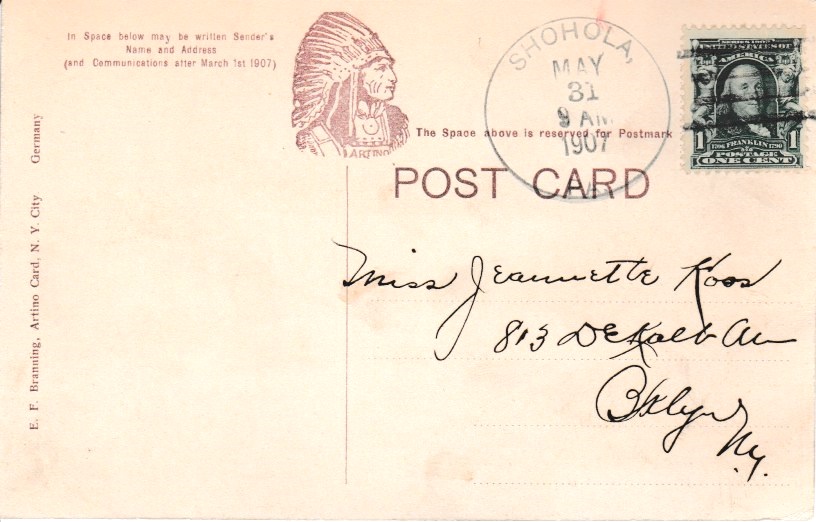 In Space below may be written Sender's
Name and Address
(and Communications after March 1st 1907)
ARTINO
The Space above is reserved for Postmark
POST CARD
SHOHOLA,
MAY
31
9 AM
1907
PA.
SERIES 1902
UNITED STATES OF
AMERICA
1 1
1706 FRANKLIN 1790
POSTAGE
ONE CENT
E. F. Branning, Artino Card, N. Y. City Germany
Miss Jeannette Koss
813 DeKalb Av
Bklyn
N.Y.